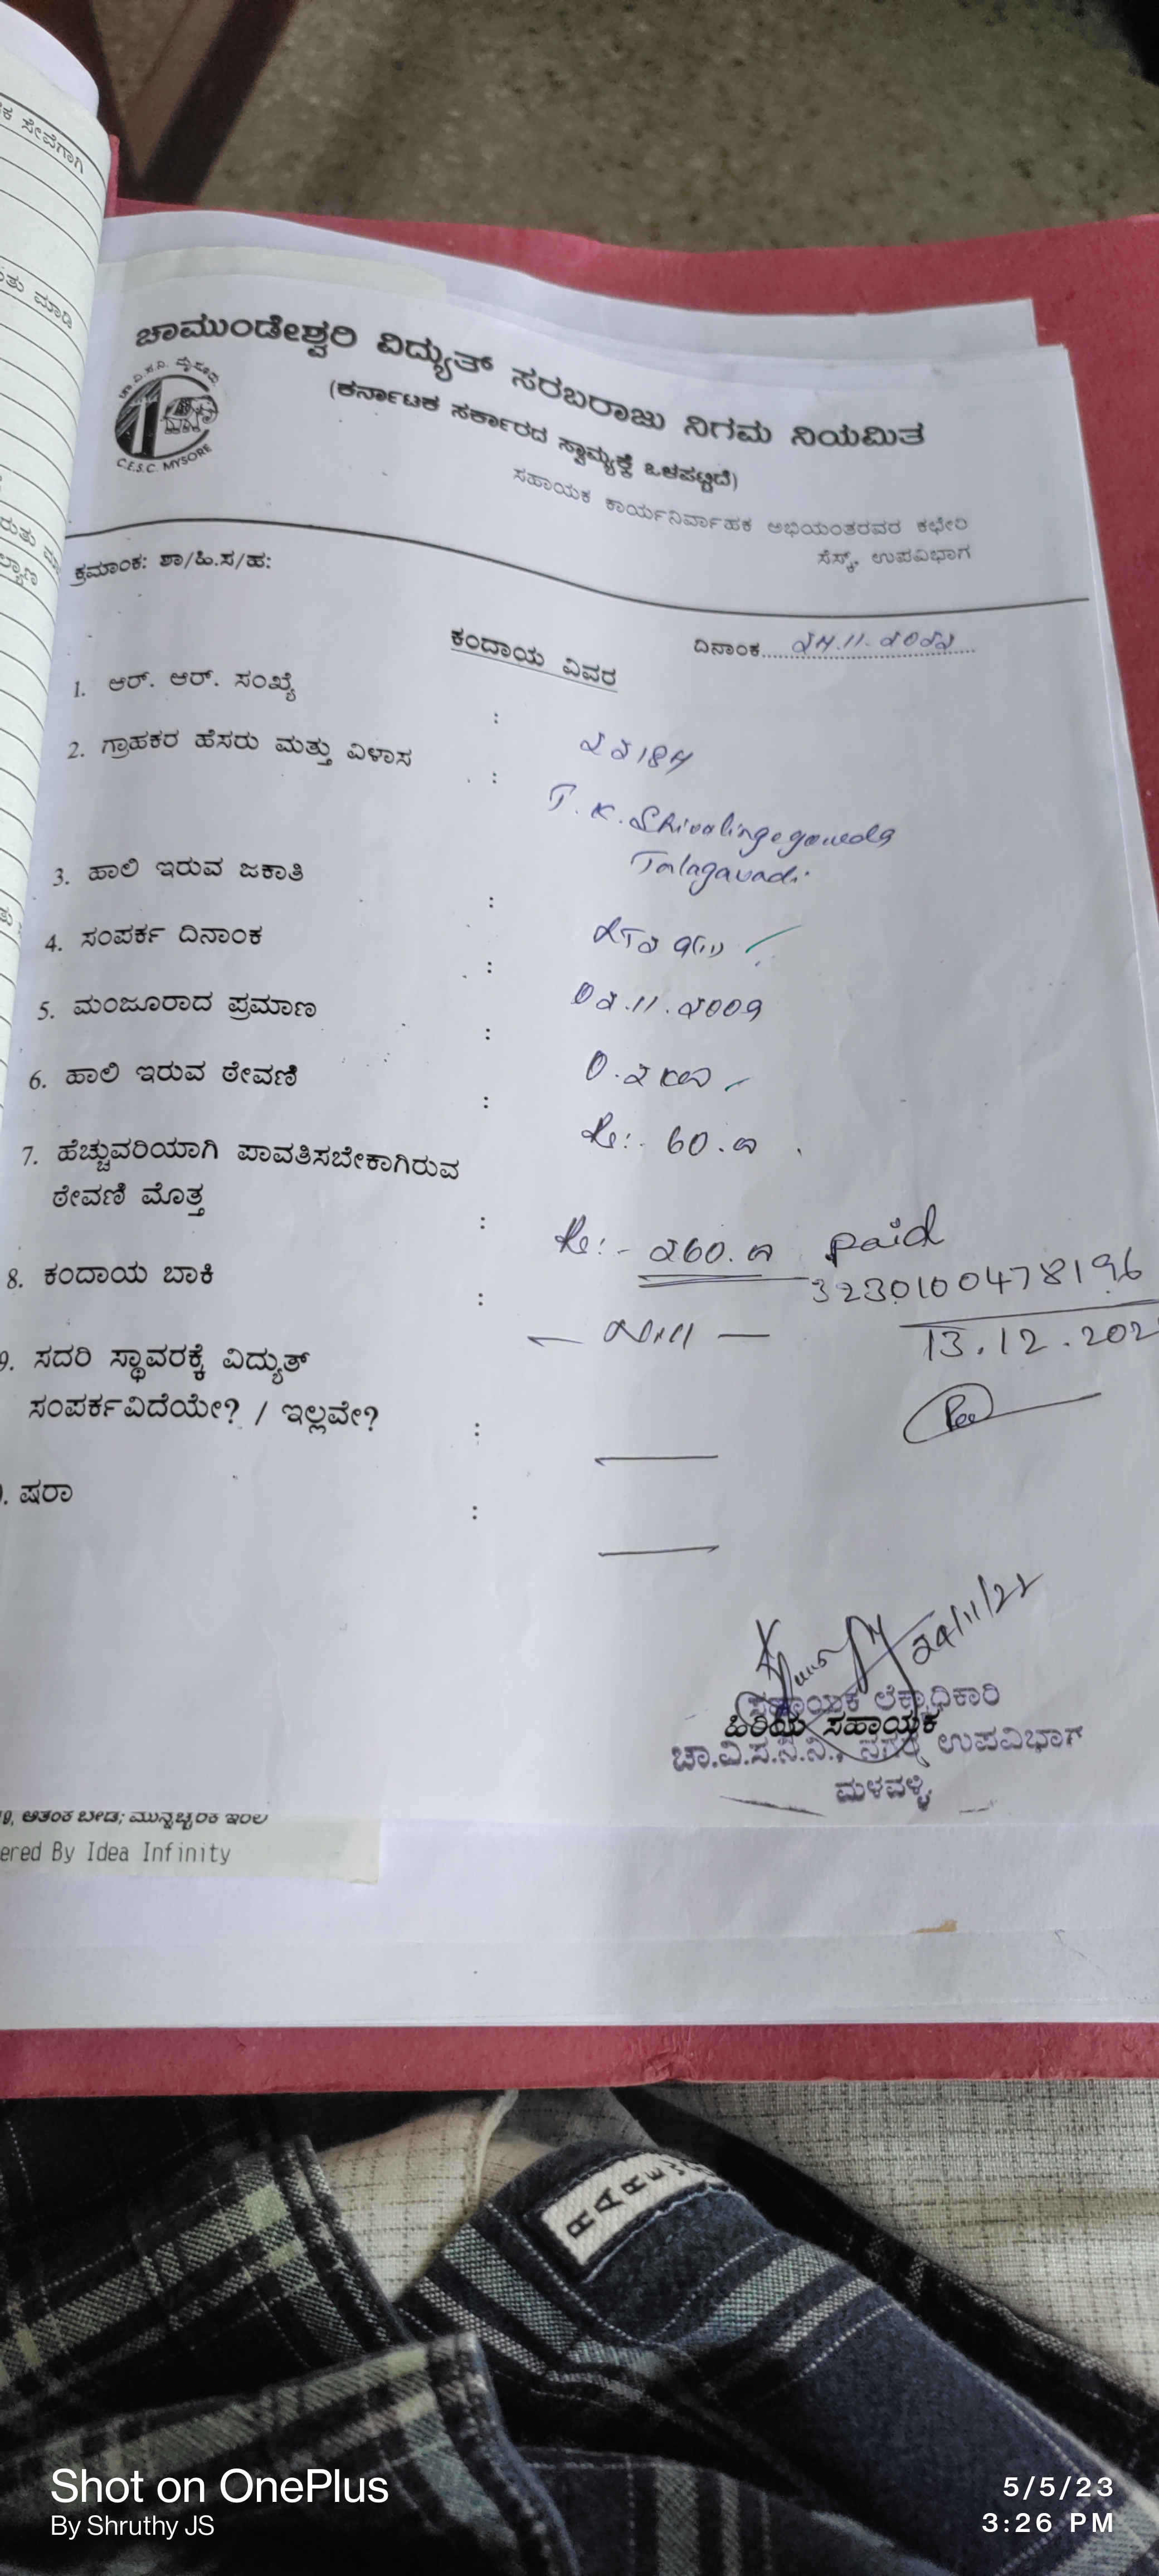 ಕ ಸೇವೆಗಾಗಿ
ತು ಮಾಡಿ
ಚಾಮುಂಡೇಶ್ವರಿ ವಿದ್ಯುತ್ ಸರಬರಾಜು ನಿಗಮ ನಿಯಮಿತ
(ಕರ್ನಾಟಕ ಸರ್ಕಾರದ ಸ್ವಾಮ್ಯಕ್ಕೆ ಒಳಪಟ್ಟಿದೆ)
ಚಾ.ವಿ.ಸ.ನಿ. ಮೈಸೂರು
C.E.S.C. MYSORE
ಸಹಾಯಕ ಕಾರ್ಯನಿರ್ವಾಹಕ ಅಭಿಯಂತರವರ ಕಛೇರಿ
ಸೆಸ್ಕ್, ಉಪವಿಭಾಗ
ಕ್ರಮಾಂಕ: ಶಾ/ಹಿ.ಸ/ಹ:
ದಿನಾಂಕ.....24.11.2022
ಕಂದಾಯ ವಿವರ
1. ಆರ್. ಆರ್. ಸಂಖ್ಯೆ :
2. ಗ್ರಾಹಕರ ಹೆಸರು ಮತ್ತು ವಿಳಾಸ : T.K. Shivalingegowda
Talagavadi
3. ಹಾಲಿ ಇರುವ ಜಕಾತಿ :
4. ಸಂಪರ್ಕ ದಿನಾಂಕ : 02.11.2009
5. ಮಂಜೂರಾದ ಪ್ರಮಾಣ : 0.2 KW
6. ಹಾಲಿ ಇರುವ ಠೇವಣಿ : Rs:- 60.00
7. ಹೆಚ್ಚುವರಿಯಾಗಿ ಪಾವತಿಸಬೇಕಾಗಿರುವ
ಠೇವಣಿ ಮೊತ್ತ : Rs:- 260.00 paid
323010047 8196
13.12.202
8. ಕಂದಾಯ ಬಾಕಿ : — Nill —
9. ಸದರಿ ಸ್ಥಾವರಕ್ಕೆ ವಿದ್ಯುತ್
ಸಂಪರ್ಕವಿದೆಯೇ? / ಇಲ್ಲವೇ? :
. ಷರಾ :
24/11/22
ಸಹಾಯಕ ಲೆಕ್ಕಾಧಿಕಾರಿ
ಹಿರಿಯ ಸಹಾಯಕ
ಚಾ.ವಿ.ಸ.ನಿ.ನಿ., ನಗರ ಉಪವಿಭಾಗ
ಮಳವಳ್ಳಿ
19, ಆತಂಕ ಬೇಡ; ಮುನ್ನೆಚ್ಚರಿಕೆ ಇರಲಿ
ered By Idea Infinity
RARE
Shot on OnePlus
By Shruthy JS
5/5/23
3:26 PM